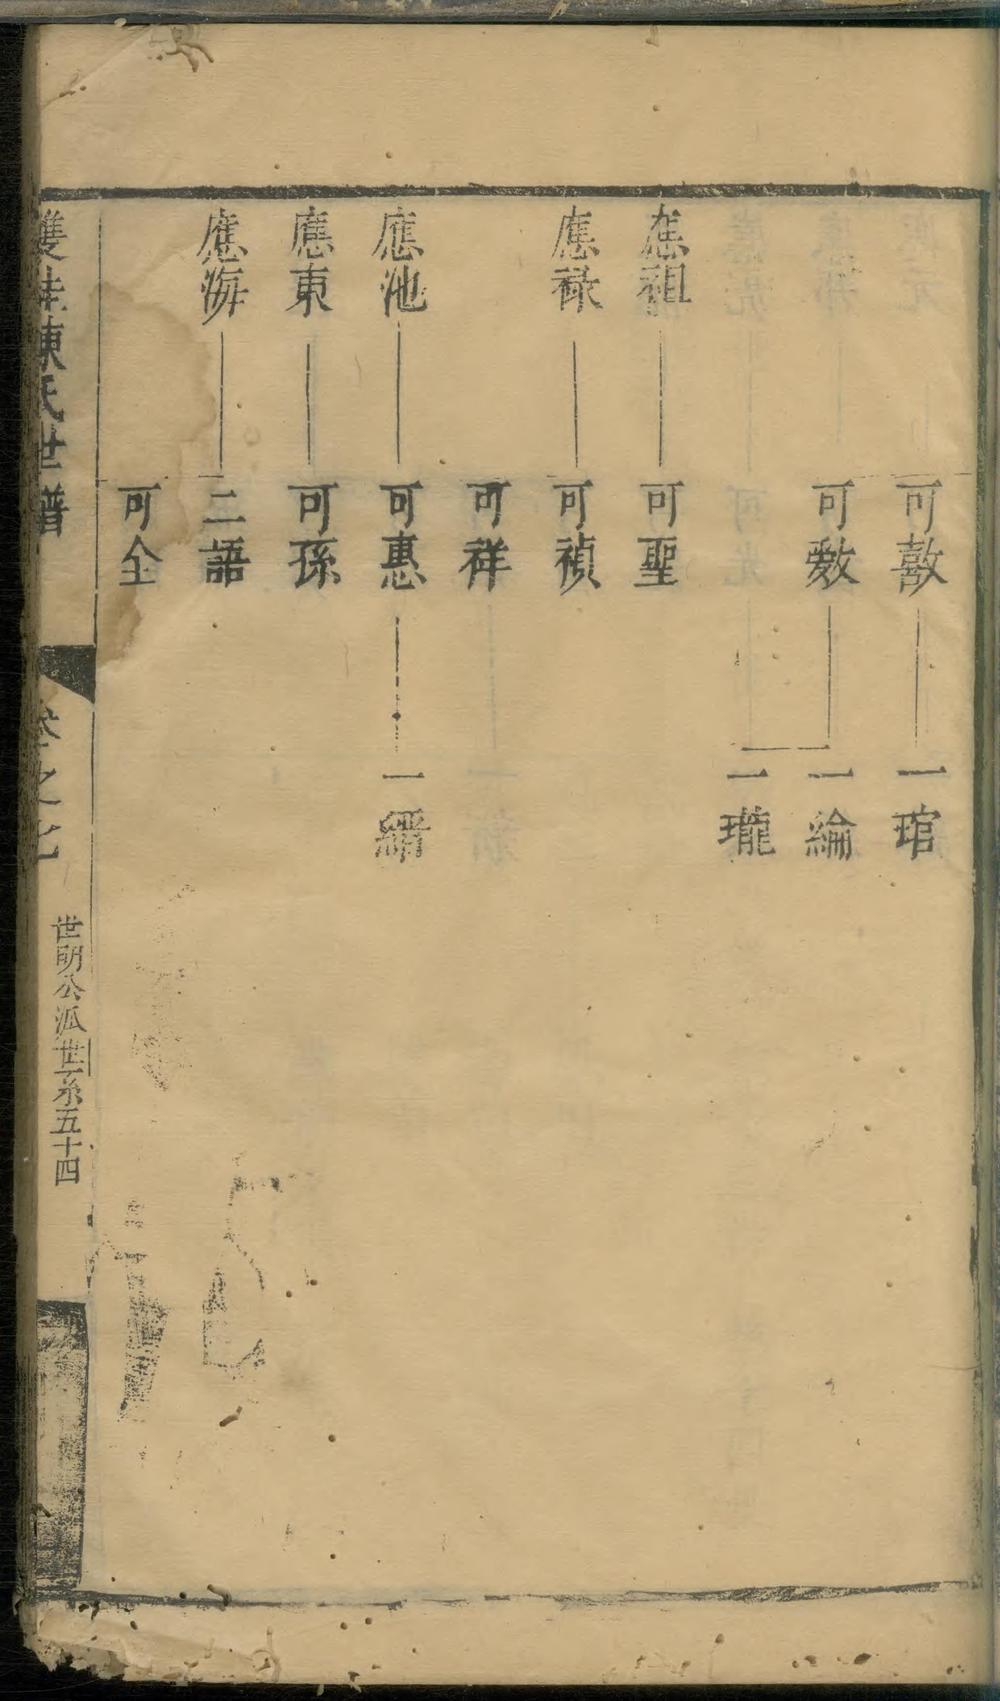 可敼
一琯
可敫
一綸
一瓏
應祖
可聖
應祿
可禎
可祥
應池
可惠
一縉
應東
可孫
應海
二語
可全
雙桂陳氏世譜
卷之七
世明公派世系五十四